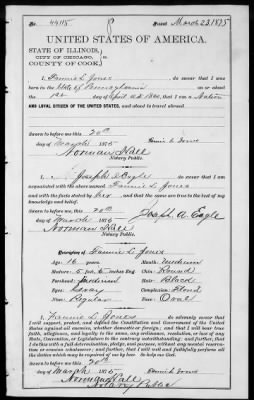 No. 4495 Issued March 23, 1875
UNITED STATES OF AMERICA.
STATE OF ILLINOIS,
CITY OF CHICAGO,
COUNTY OF COOK.
I, Fannie L. Jones do swear that I was
born in the State of Pennsylvania on or about
the 12th day of April A.D. 18 that I am a Native
AND LOYAL CITIZEN OF THE UNITED STATES, and about to travel abroad.
Sworn to before me this 20th
day of March 1875 Fannie L. Jones
Norman Hall
Notary Public.
I, Joseph A Eagle do swear that I am
acquainted with the above named Fannie L. Jones
and with the facts stated by her and that the same are true to the best of my
knowledge and belief.
Sworn to before me this 20th
day of March 1875 Joseph A. Eagle
Norman Hall
Notary Public.
Description of Fannie L. Jones
Age: 16 years Mouth: Medium
Stature: 5 feet, inches Eng. Chin: Round
Forehead: Medium Hair: Black
Eyes: Complexion: Blond
Nose: Regular Face: Oval
I, Fannie L. Jones do solemnly swear that I
will support, protect, and defend the Constitution and Government of the United
States against all enemies, whether domestic or foreign; and that I will bear true
faith, allegiance, and loyalty to the same, any ordinance, resolution, or law of any
State, Convention, or Legislature to the contrary notwithstanding; and further, that
I do this with a full determination, pledge, and purpose, without any mental reservation
or evasion whatsoever; and further, that I will well and faithfully perform all
the duties which may be required of me by law. So help me God.
Sworn to before me this 20th
day of March 1875 Fannie L Jones
Norman Hall
Notary Public